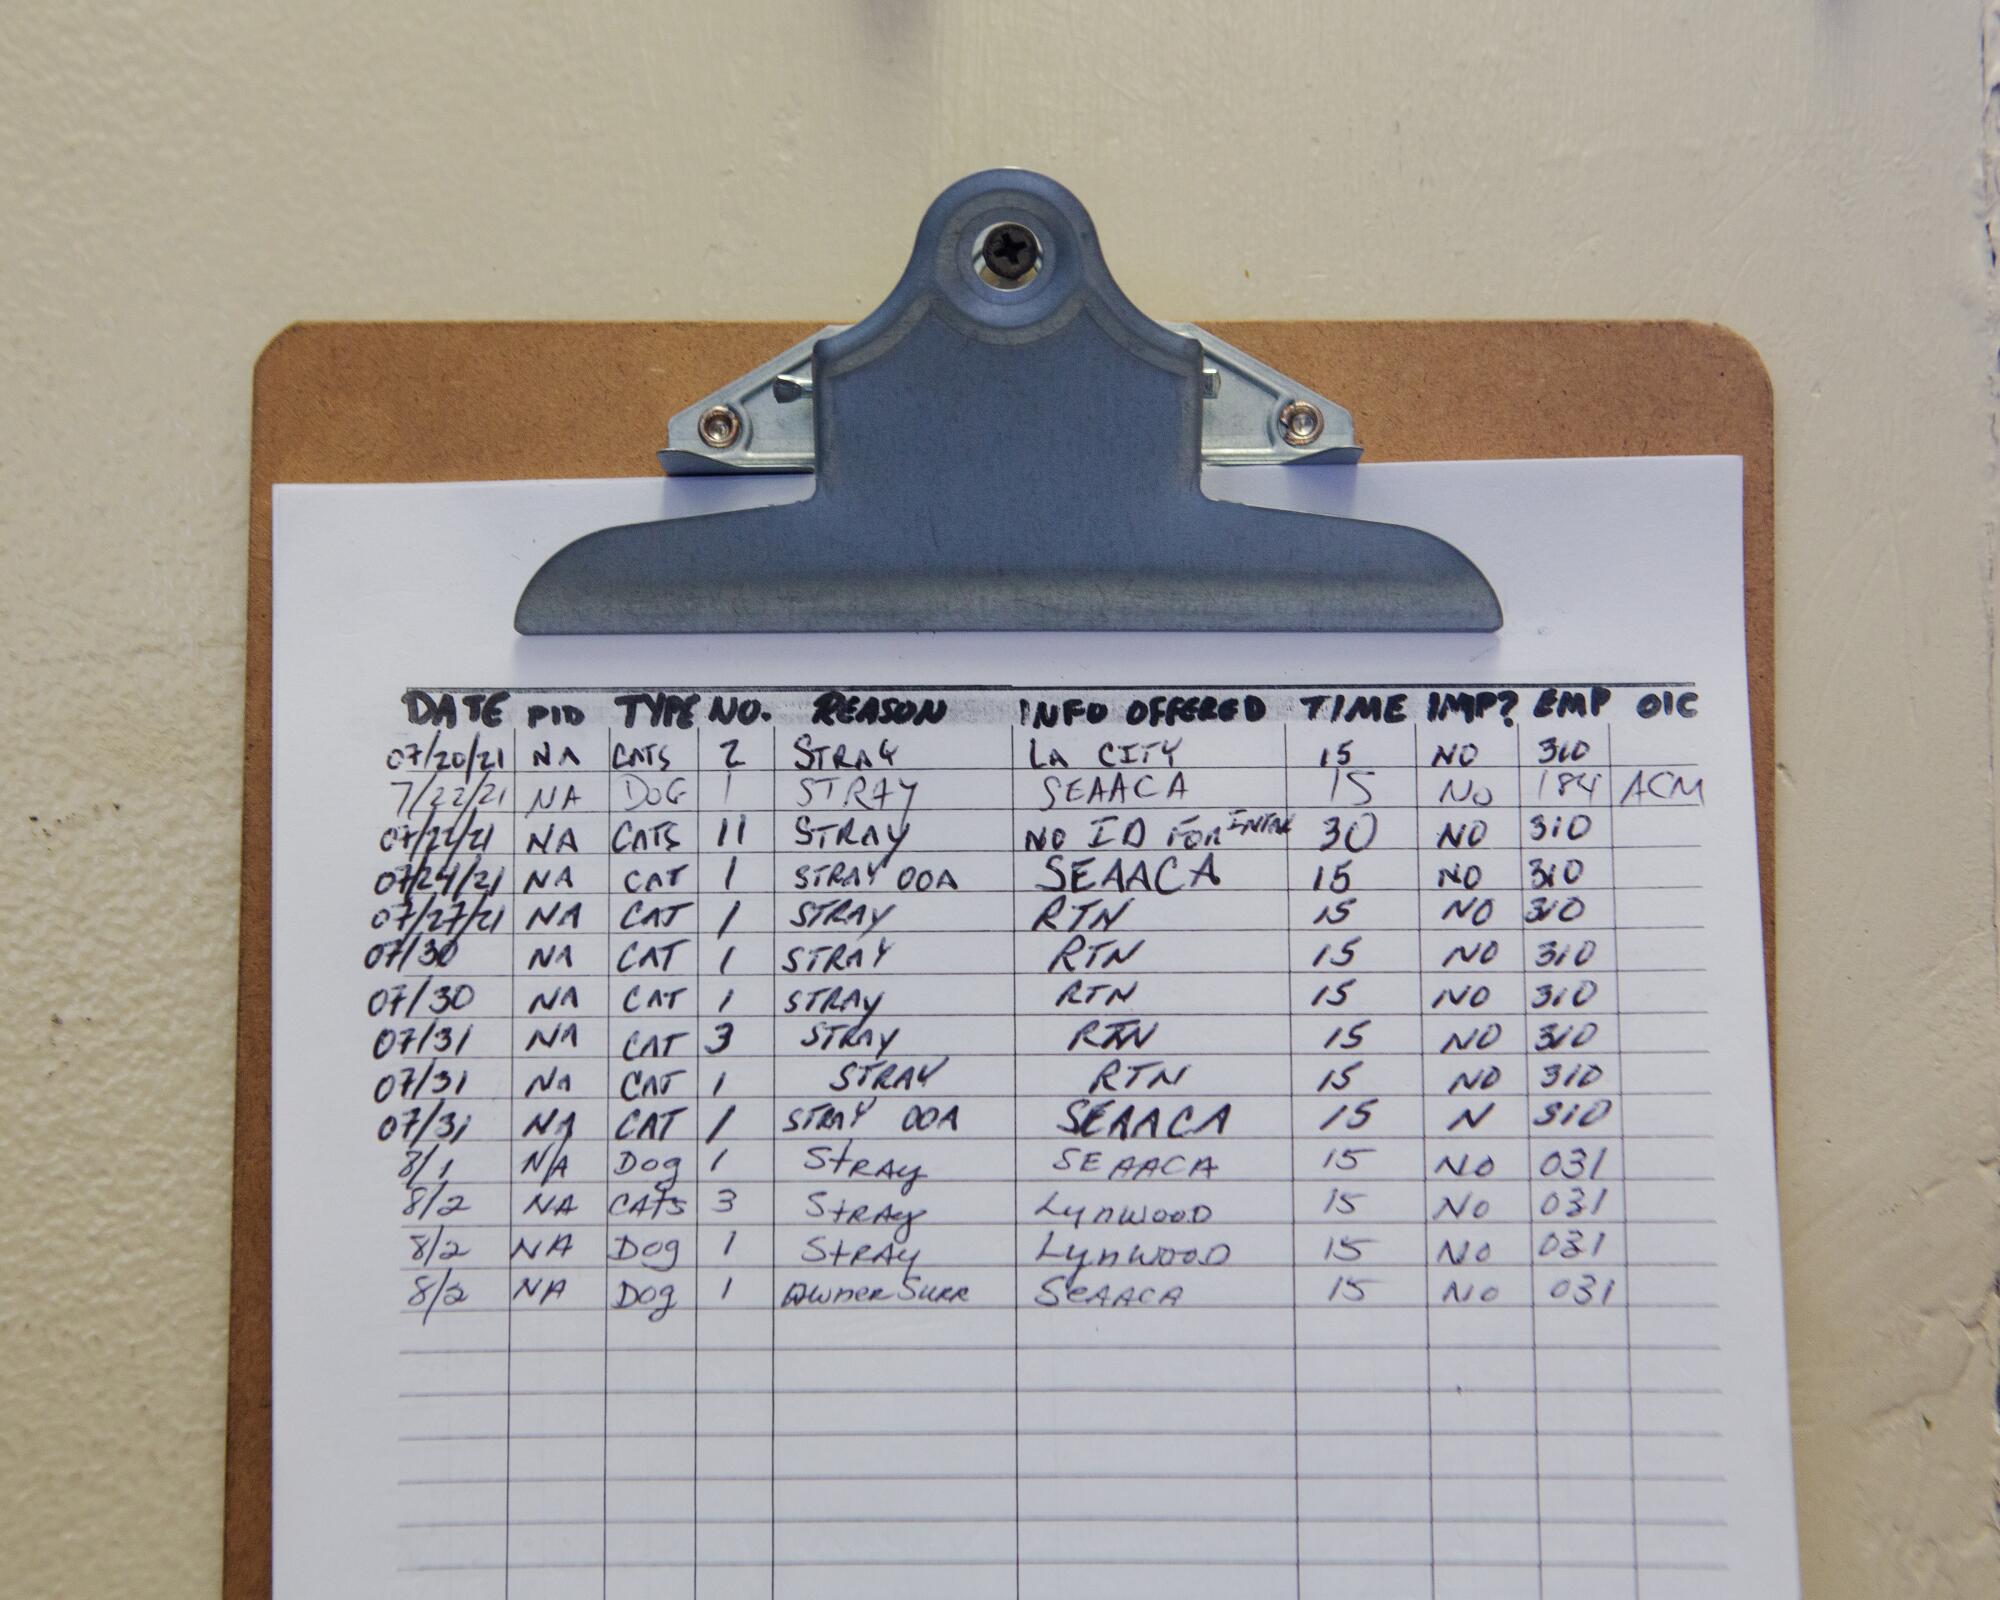 DATE PID TYPE NO. REASON INFO OFFERED TIME IMP? EMP OIC
07/20/21 NA CATS 2 STRAY LA CITY 15 NO 310
7/22/21 NA DOG 1 STRAY SEAACA 15 No 184 ACM
NA CATS 11 STRAY NO ID FOR 30 NO 310
07/24/21 NA CAT 1 STRAY OOA SEAACA 15 NO 310
07/27/21 NA CAT 1 STRAY RTN 15 NO 310
07/30 NA CAT 1 STRAY RTN 15 NO 310
07/30 NA CAT 1 STRAY RTN 15 NO 310
07/31 NA CAT 3 STRAY RTN 15 NO 310
07/31 NA CAT 1 STRAY RTN 15 NO 310
07/31 NA CAT 1 STRAY OOA SEAACA 15 N 310
8/1 N/A Dog 1 StRAy SEAACA 15 No 031
8/2 NA CATS 3 StRAy LynwooD 15 No 031
8/2 NA Dog 1 StRAY LynwooD 15 No 031
8/2 NA Dog 1 OwnerSurr SeAACA 15 No 031